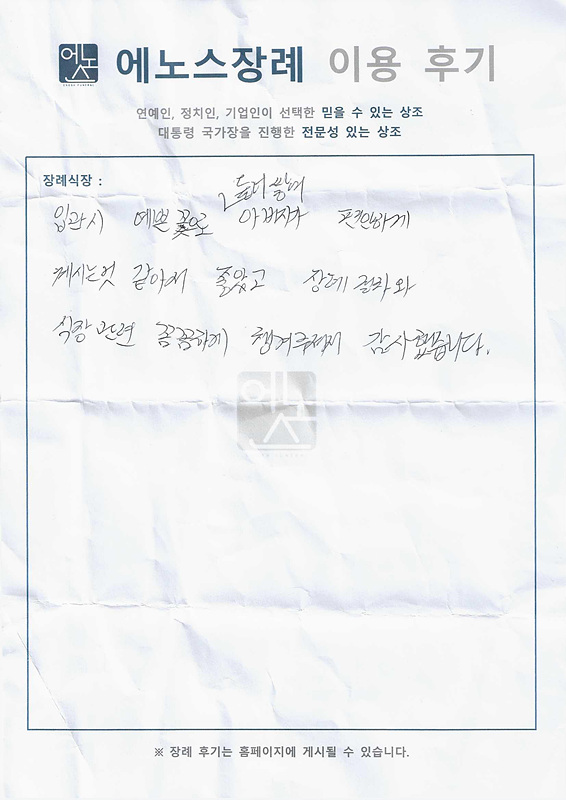 에노스
에노스장례 이용 후기
연예인, 정치인, 기업인이 선택한 믿을 수 있는 상조
대통령 국가장을 진행한 전문성 있는 상조
장례식장 :
둘러쌓여
입관시 예쁜 꽃으로 아버지가 편안하게
계시는것 같아서 좋았고 장례 절차와
식장 관련 꼼꼼하게 챙겨주셔서 감사했습니다.
※ 장례 후기는 홈페이지에 게시될 수 있습니다.